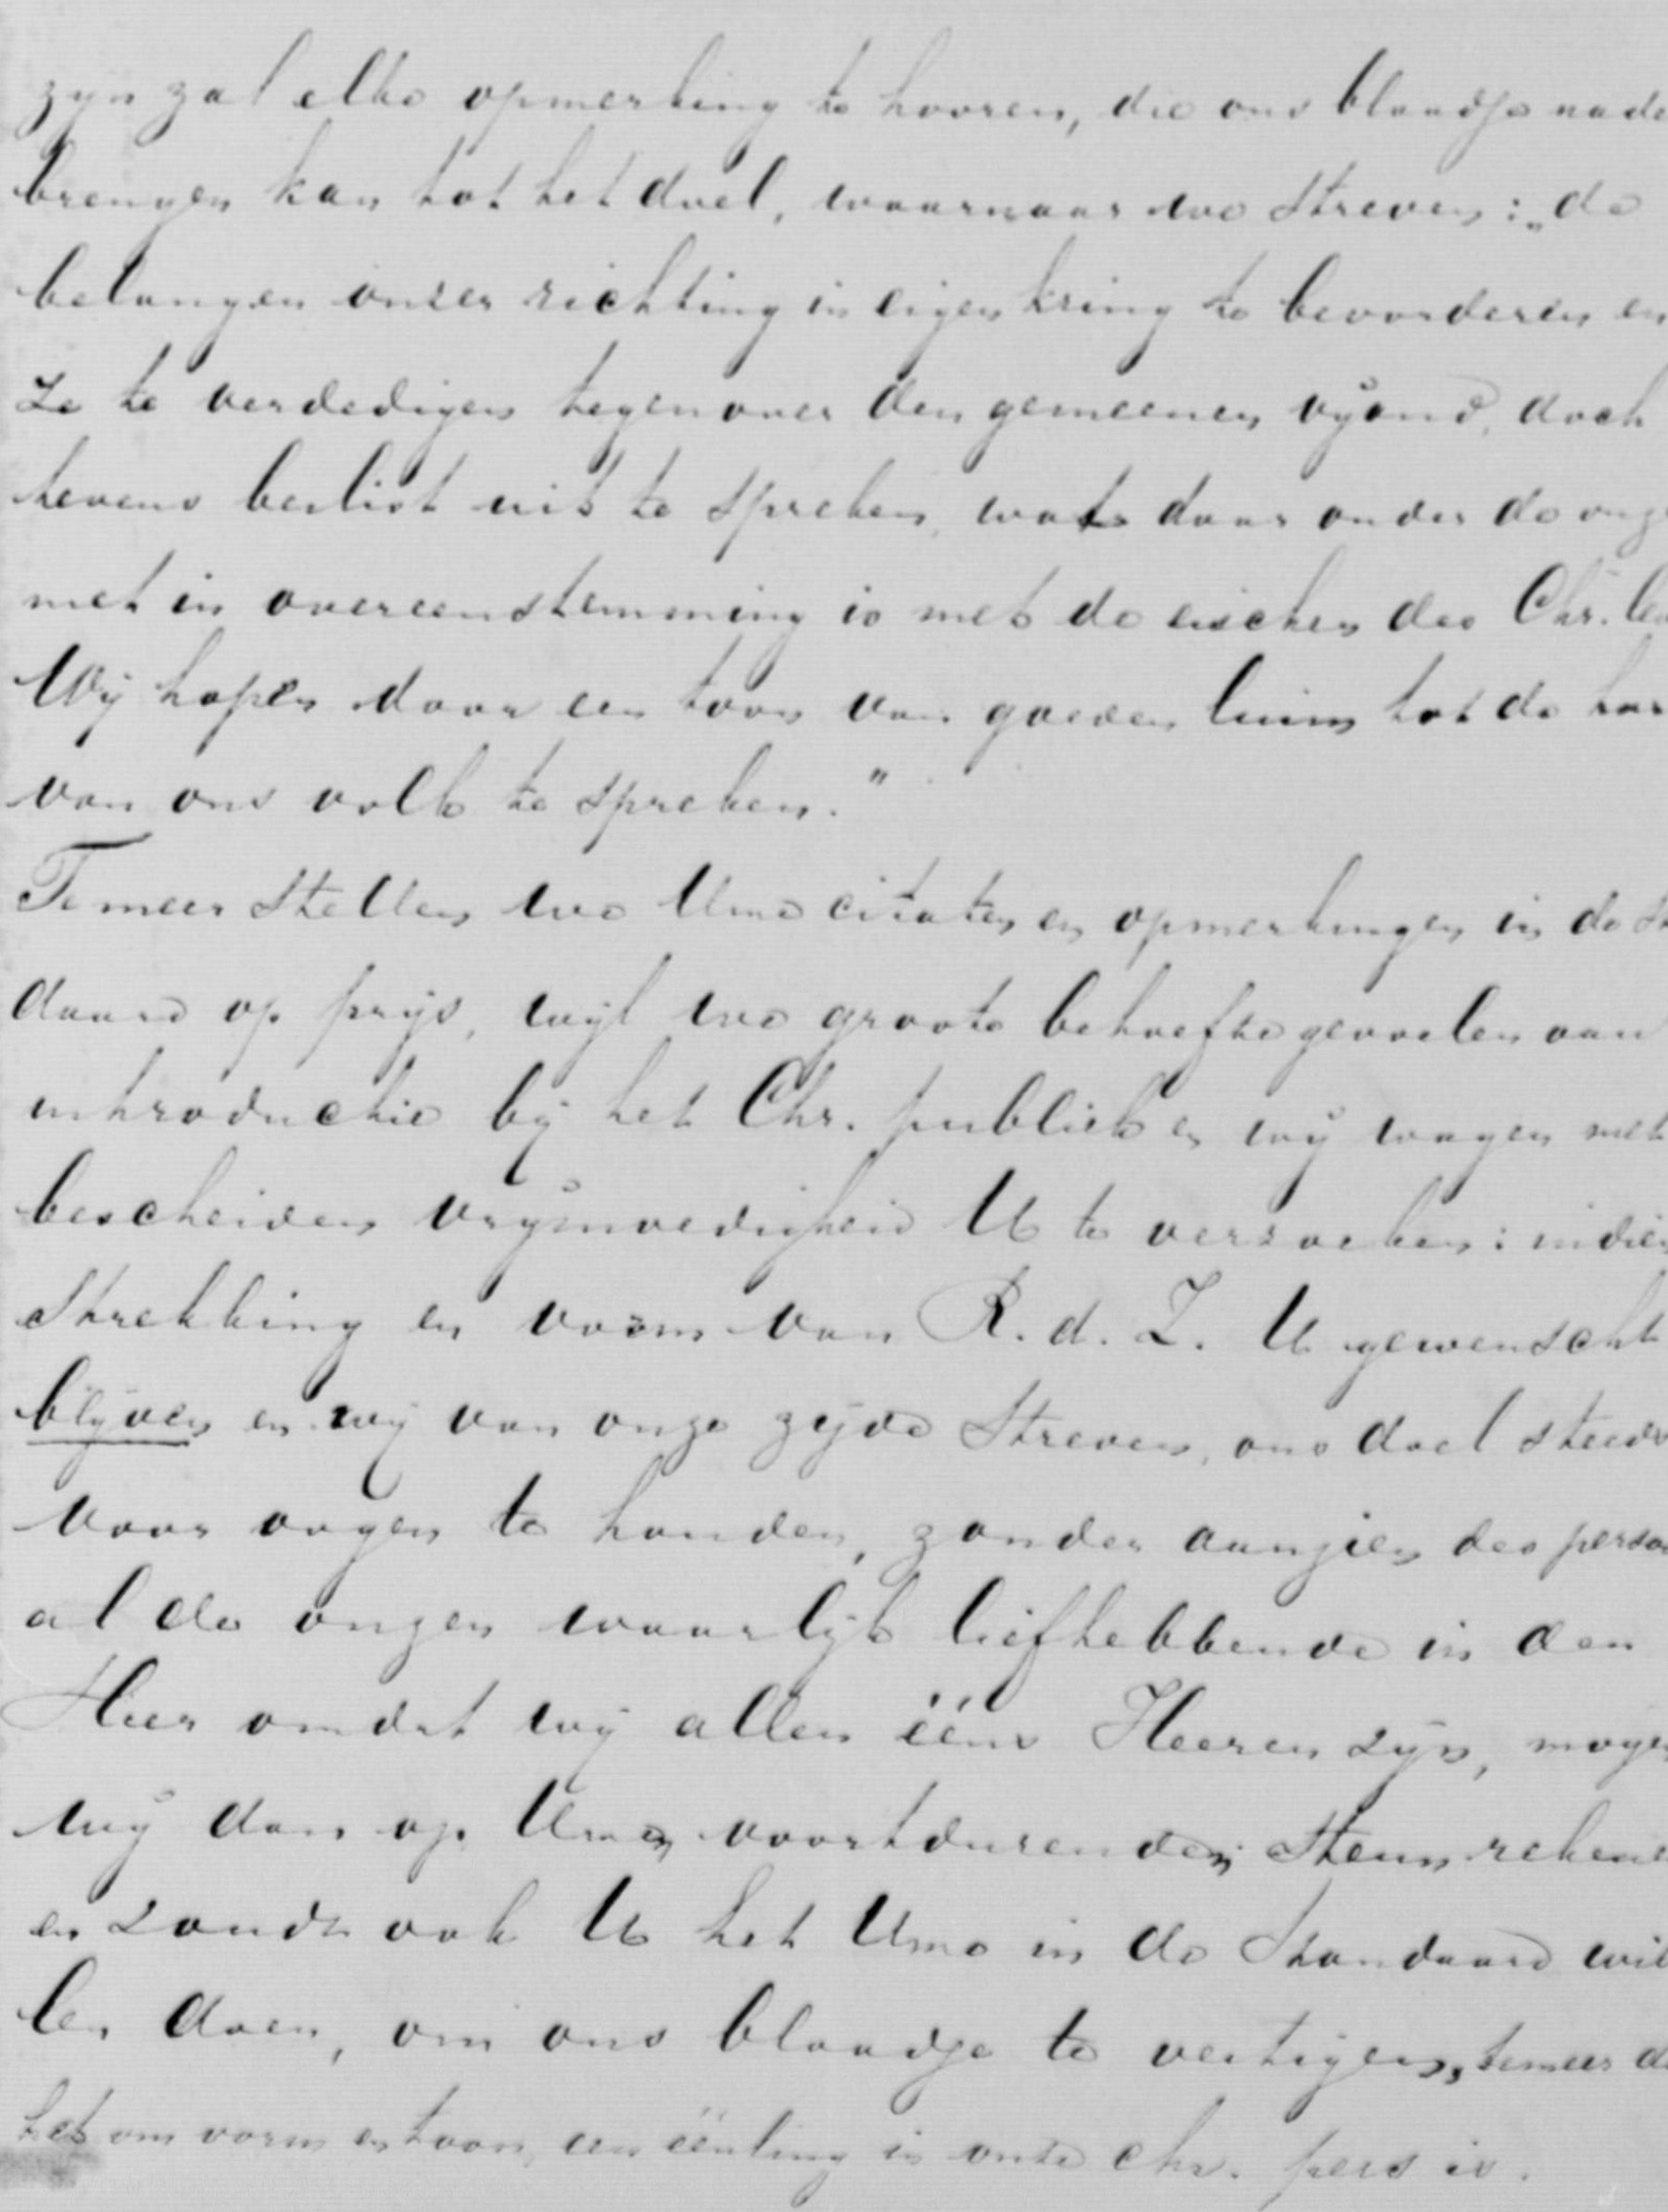 zijn zal elke opmerking te hooren, die ons blaadje nade
brengen kan tot het doel, waarnaar we streven: „de
belangen onzer richting in eigen kring te bevorderen en
ze te verdedigen tegenover den gemeenen vijand, doch
tevens beslist uit te spreken, wat daar onder de onze
niet in overeenstemming is met de eischen des Chr. le
Wij hopen door een toon van goeden luim tot de har
van ons volk te spreken."
Temeer stellen we Uwe citaten en opmerkingen in de St
daard op prijs, wijl we groote behoefte gevoelen aan
introductie bij het Chr. publiek en wij wagen met
bescheiden vrijmoedigheid U te verzoeken: indien
strekking en vorm van R. d. Z. U gewenscht
blijven en wij van onze zijde streven, ons doel steeds
voor oogen te houden, zonder aanzien des perso
al de onzen waarlijk liefhebbende in den
Heer omdat wij allen ééns Heeren zijn, mogen
wij dan op Uwen voortdurenden steun rekene
en zoudt ook U het Uwe in de Standaard wil
len doen, om ons blaadje te vestigen, temeer d
het om vorm en toon, een éénling in onze chr. pers is.